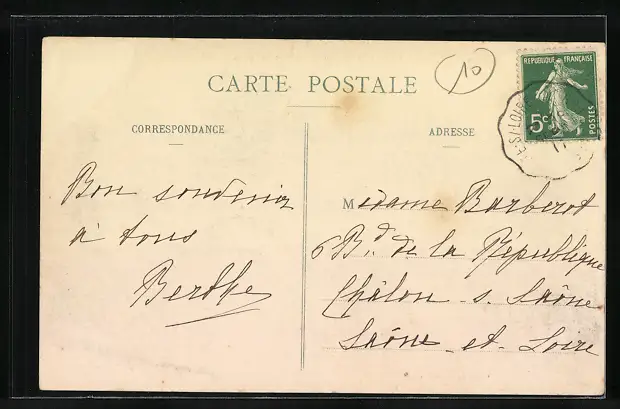 CARTE POSTALE
10
REPUBLIQUE FRANÇAISE
5c
POSTES
CORRESPONDANCE
ADRESSE
Bon souvenir
à tous
Berthe
Madame Barberot
6 Bd. de la République
Châlon s. Saône
Saône et Loire